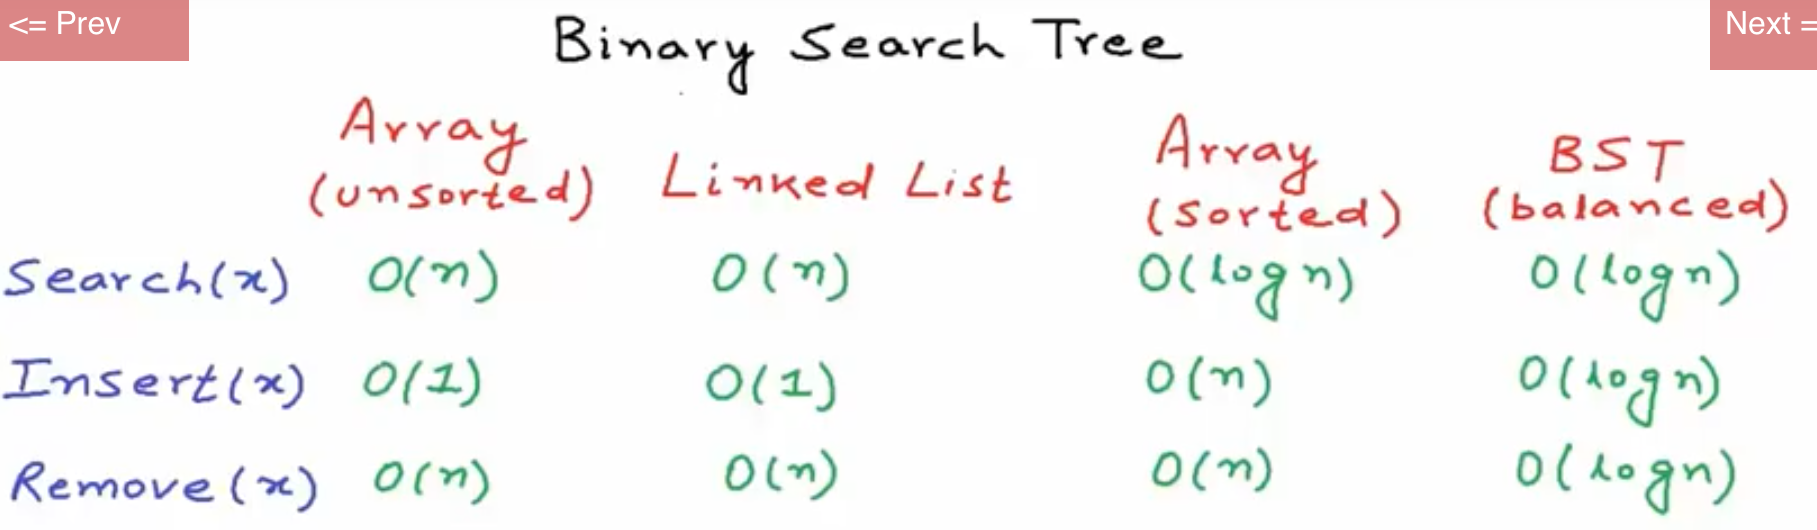 <= Prev
Next =
Binary Search Tree
Array (unsorted) Linked List Array (sorted) BST (balanced)
Search(x) O(n) O(n) O(log n) O(log n)
Insert(x) O(1) O(1) O(n) O(log n)
Remove(x) O(n) O(n) O(n) O(log n)